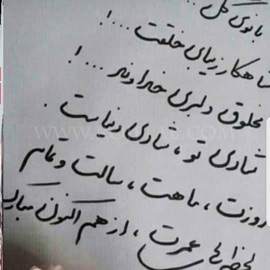 بانوی گل ...
شاهکار زیبای خلقت ...!
مخلوق دلبری خداوند ...!
شادی تو، شادی دنیاست.
روزت، ماهت، سالت و تمام
لحظه های عمرت، از هم اکنون مبارک